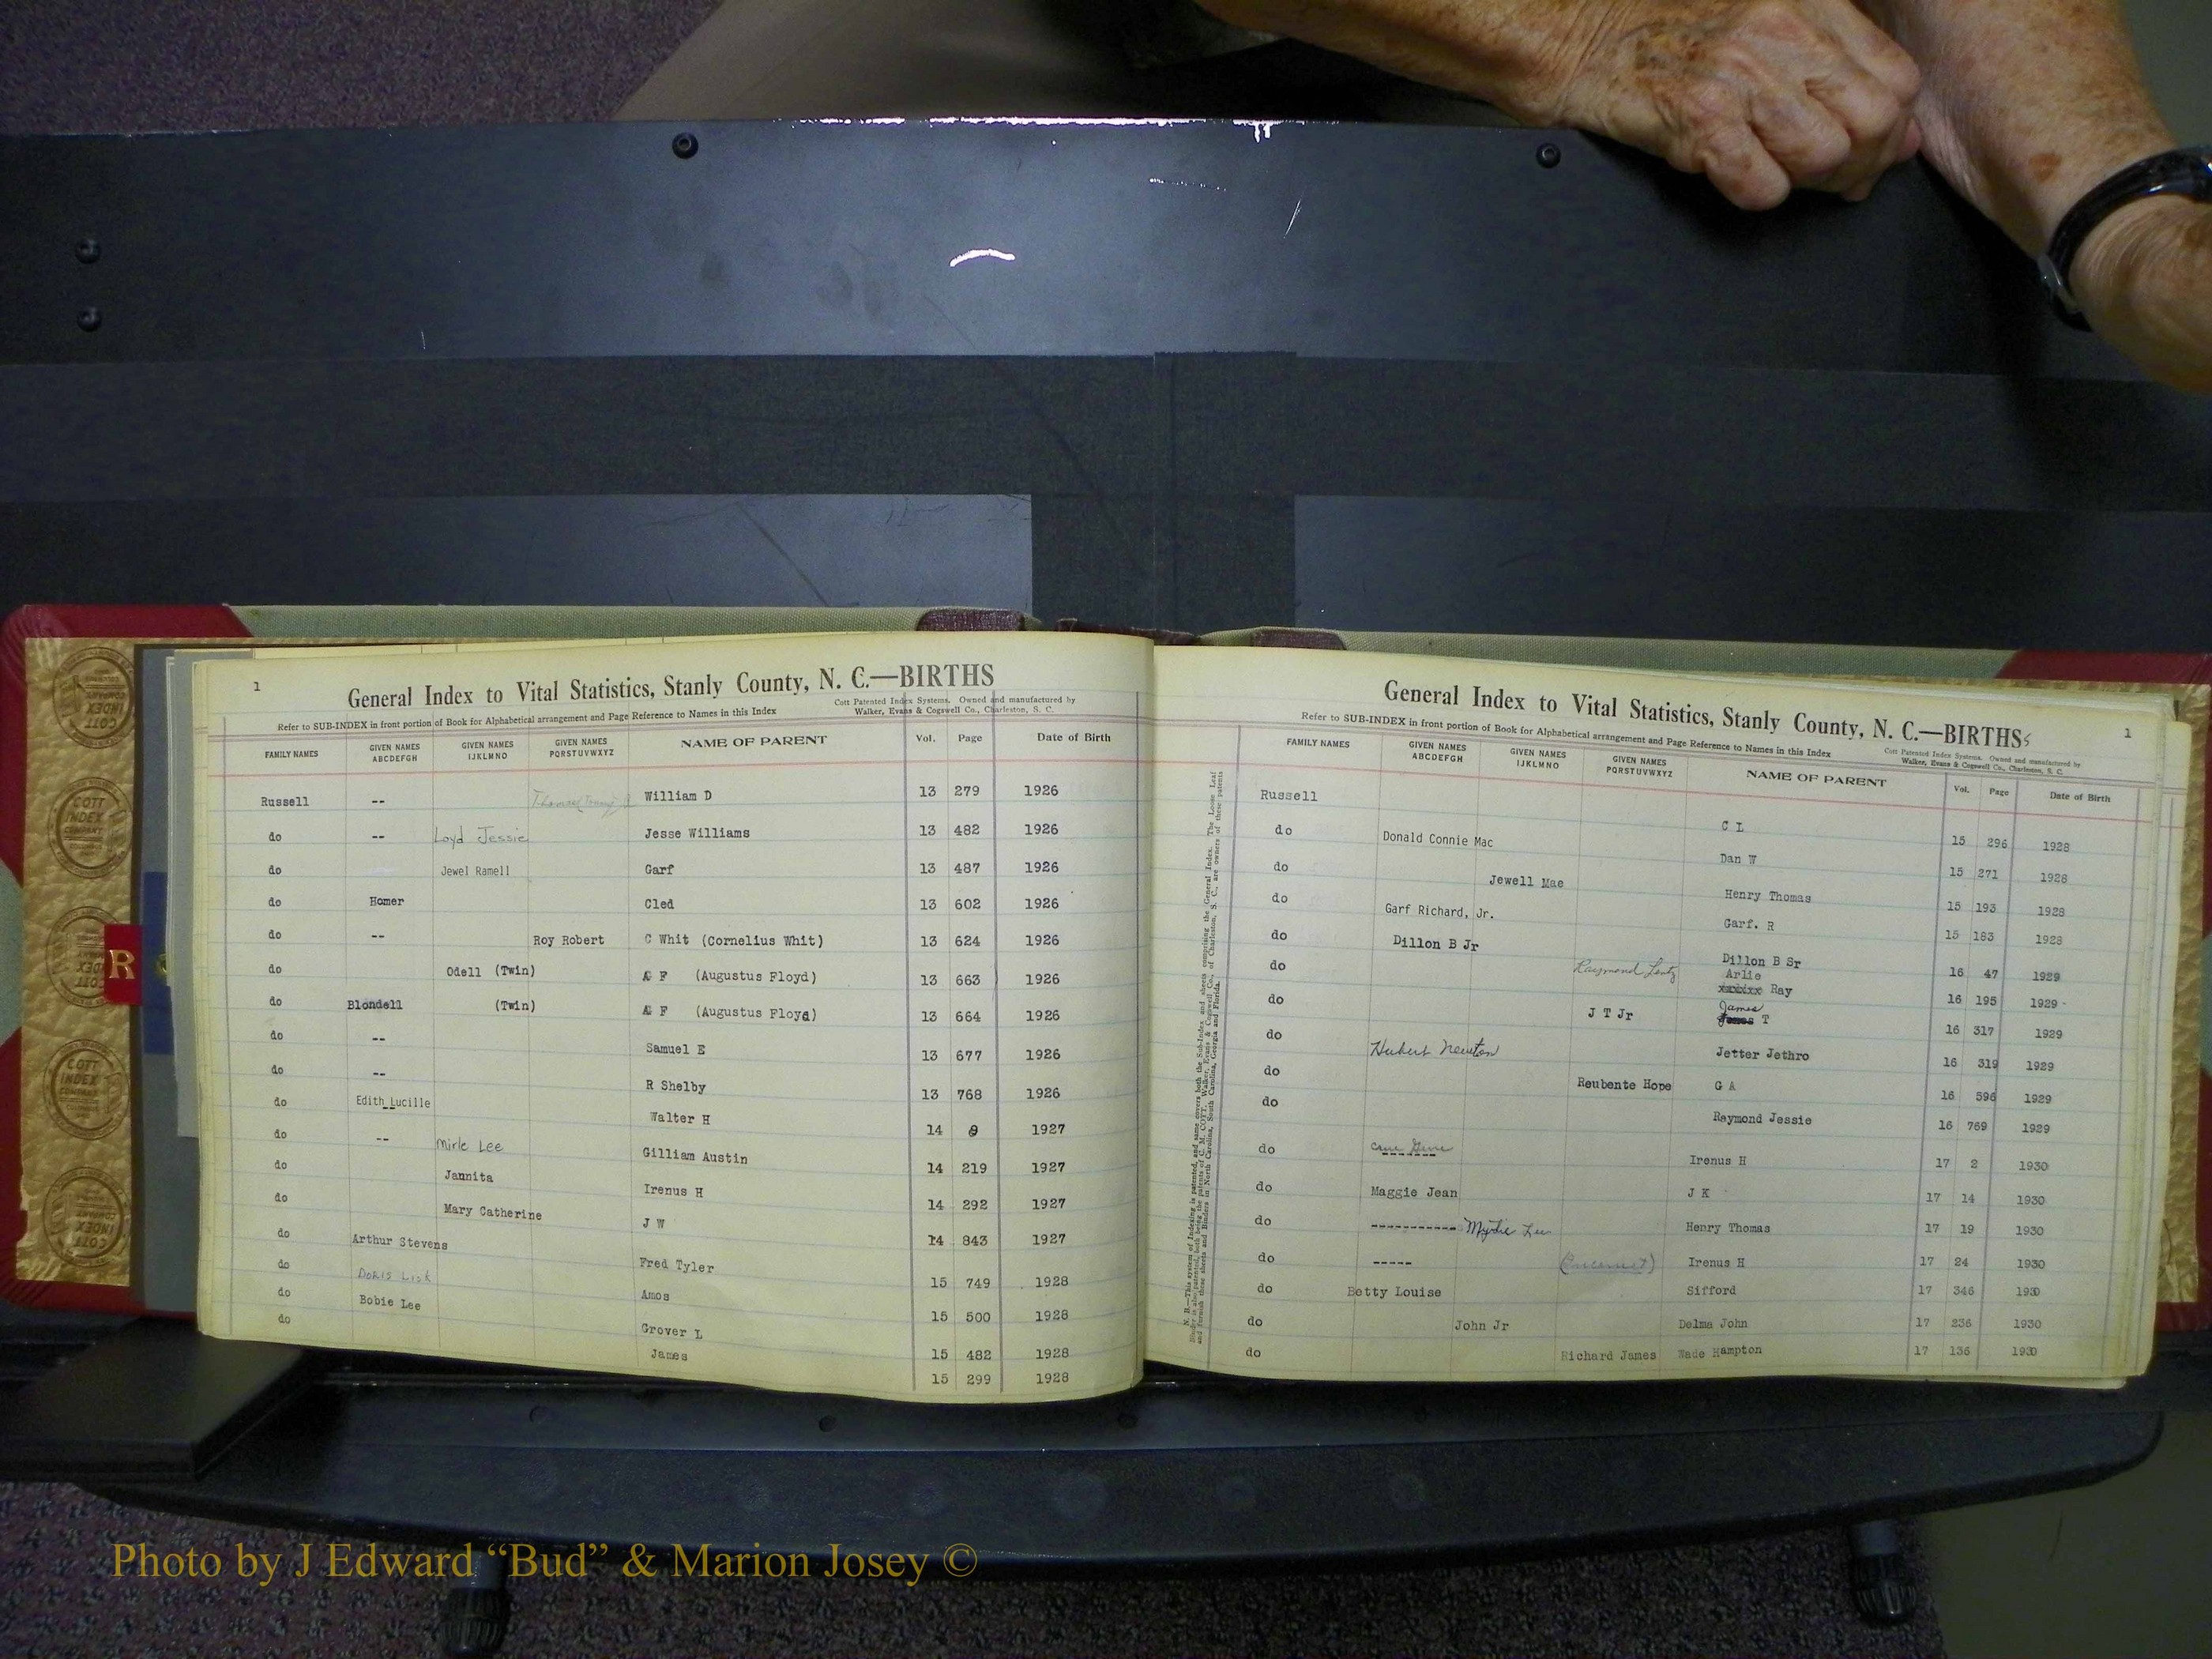 1
General Index to Vital Statistics, Stanly County, N. C.—BIRTHS
Refer to SUB-INDEX in front portion of Book for Alphabetical arrangement and Page Reference to Names in this Index
Cott Patented Index Systems. Owned and manufactured by
Walker, Evans & Cogswell Co., Charleston, S. C.
FAMILY NAMES GIVEN NAMES ABCDEFGH GIVEN NAMES IJKLMNO GIVEN NAMES PQRSTUVWXYZ NAME OF PARENT Vol. Page Date of Birth
Russell -- William D 13 279 1926
do -- Loyd Jessie Jesse Williams 13 482 1926
do Jewel Ramell Garf 13 487 1926
do Homer Cled 13 602 1926
do -- Roy Robert C Whit (Cornelius Whit) 13 624 1926
do Odell (Twin) A F (Augustus Floyd) 13 663 1926
do Blondell (Twin) A F (Augustus Floyd) 13 664 1926
do -- Samuel E 13 677 1926
do -- R Shelby 13 768 1926
do Edith Lucille Walter H 14 9 1927
do -- Mirle Lee Gilliam Austin 14 219 1927
do Jannita Irenus H 14 292 1927
do Mary Catherine J W 14 843 1927
do Arthur Stevens Fred Tyler 15 749 1928
do Doris Lisk Amos 15 500 1928
do Bobie Lee Grover L 15 482 1928
do James 15 299 1928
General Index to Vital Statistics, Stanly County, N. C.—BIRTHS
1
Refer to SUB-INDEX in front portion of Book for Alphabetical arrangement and Page Reference to Names in this Index
Cott Patented Index Systems. Owned and manufactured by
Walker, Evans & Cogswell Co., Charleston, S. C.
FAMILY NAMES GIVEN NAMES ABCDEFGH GIVEN NAMES IJKLMNO GIVEN NAMES PQRSTUVWXYZ NAME OF PARENT Vol. Page Date of Birth
Russell C L 15 296 1928
do Donald Connie Mac Dan W 15 271 1928
do Jewell Mae Henry Thomas 15 193 1928
do Garf Richard, Jr. Garf. R 15 183 1928
do Dillon B Jr Dillon B Sr 16 47 1929
do Raymond Lentz Arlie Ray 16 195 1929
do J T Jr James T 16 317 1929
do Hubert Newton Jetter Jethro 16 319 1929
do Reubente Hope G A 16 596 1929
do Raymond Jessie 16 769 1929
do Gene Irenus H 17 2 1930
do Maggie Jean J K 17 14 1930
do ----------- Myrtie Lee Henry Thomas 17 19 1930
do ----- Irenus H 17 24 1930
do Betty Louise Sifford 17 346 1930
do John Jr Delma John 17 236 1930
do Richard James Wade Hampton 17 136 1930
R
COTT INDEX COMPANY
Photo by J Edward “Bud” & Marion Josey ©